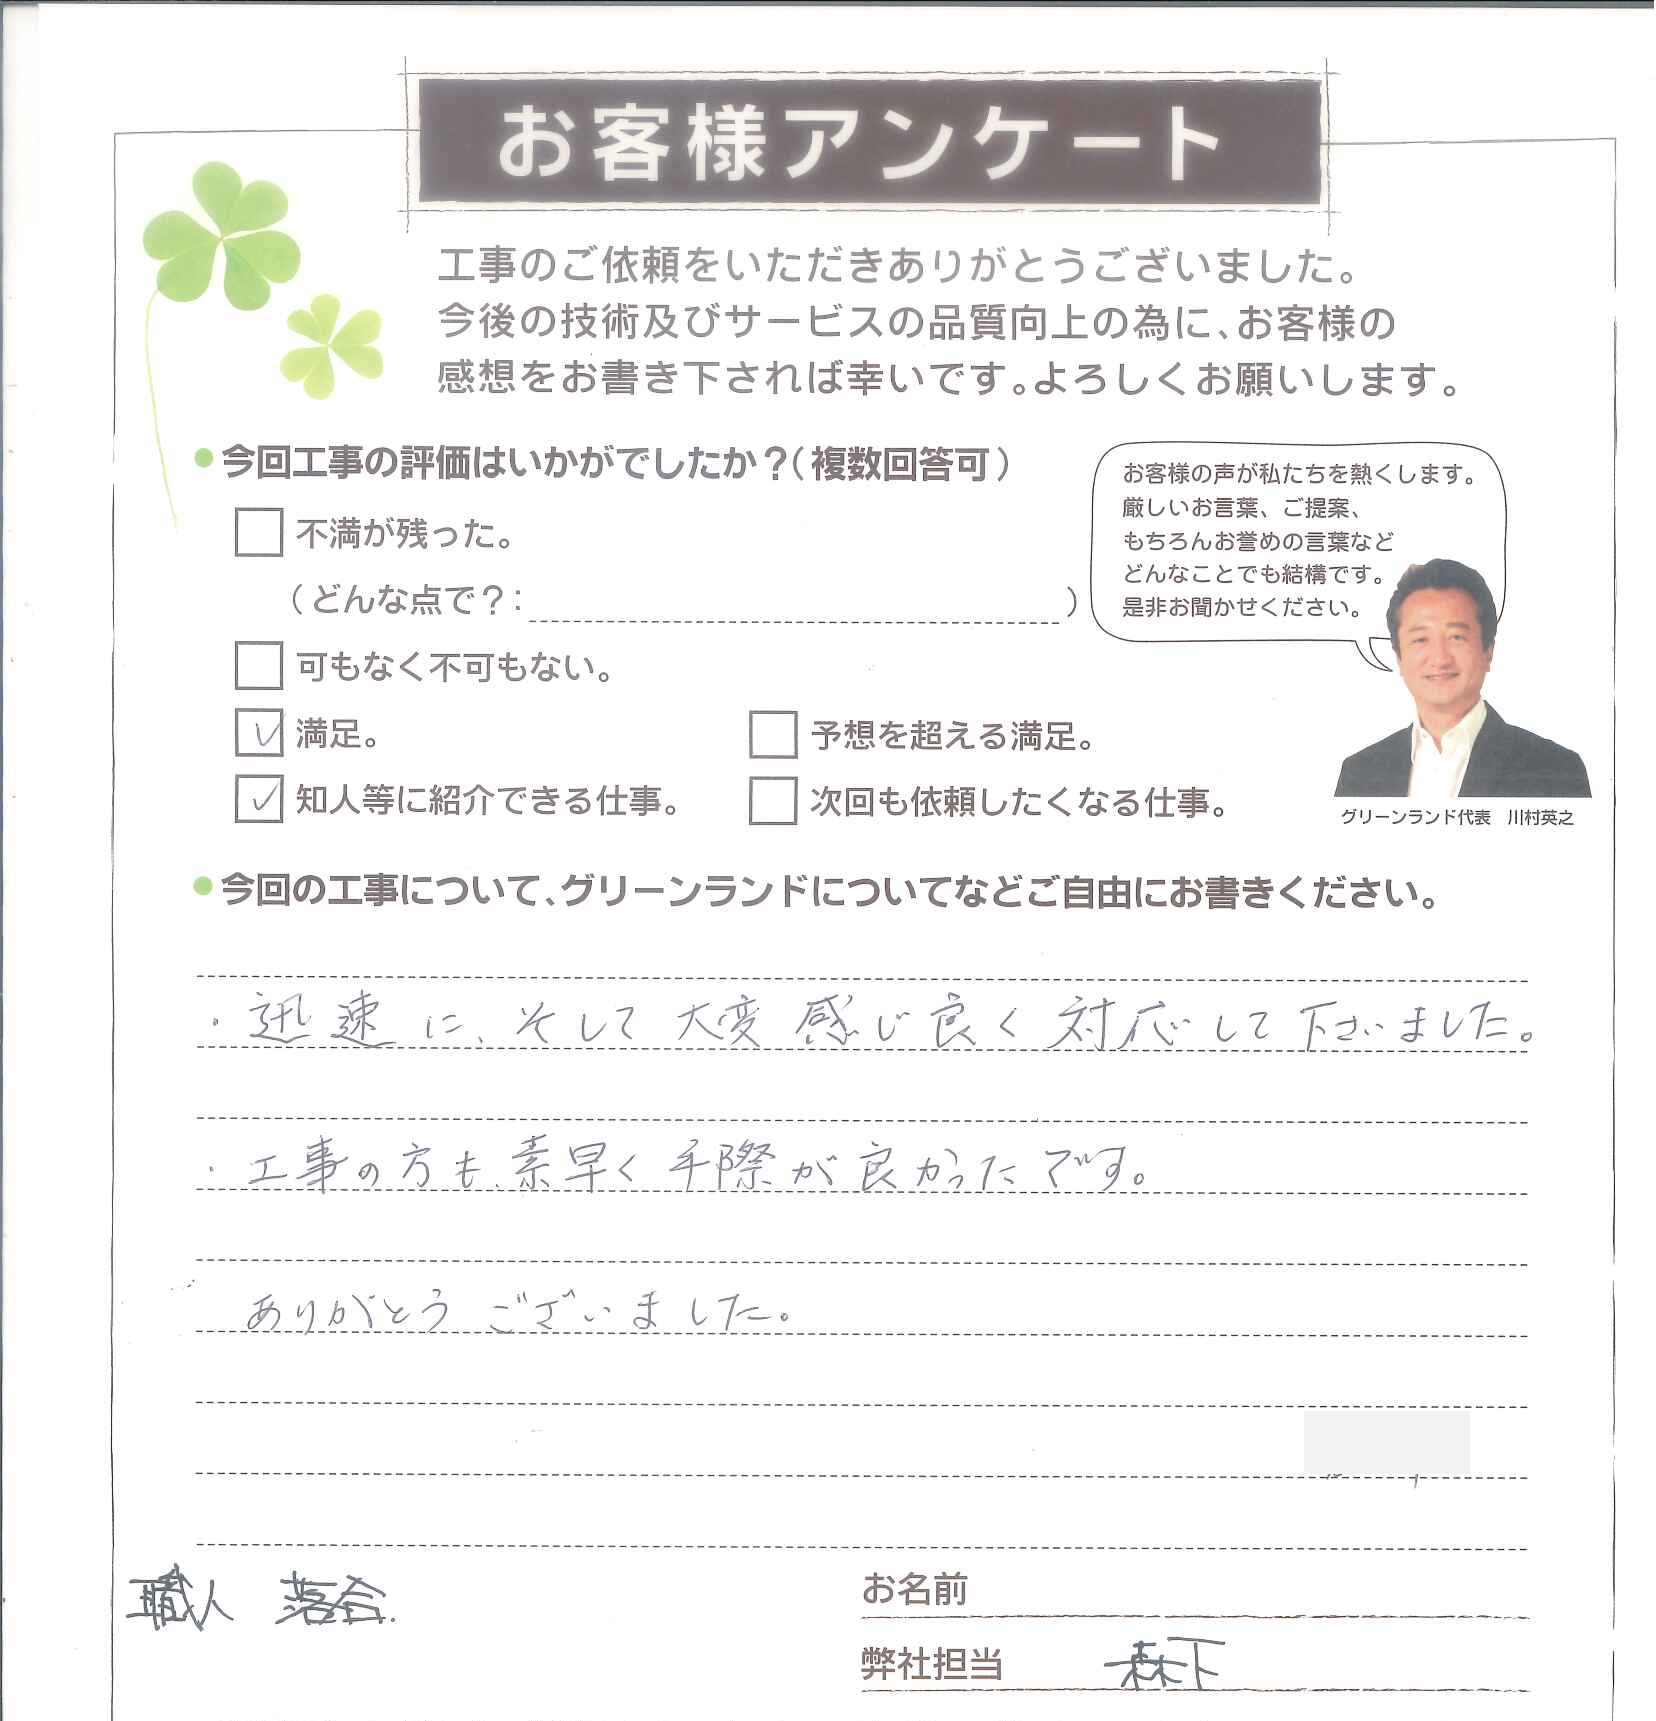 お客様アンケート
工事のご依頼をいただきありがとうございました。
今後の技術及びサービスの品質向上の為に、お客様の
感想をお書き下されば幸いです。よろしくお願いします。
●今回工事の評価はいかがでしたか？（複数回答可）
不満が残った。
（どんな点で？： ）
可もなく不可もない。
満足。
予想を超える満足。
知人等に紹介できる仕事。
次回も依頼したくなる仕事。
お客様の声が私たちを熱くします。
厳しいお言葉、ご提案、
もちろんお誉めの言葉など
どんなことでも結構です。
是非お聞かせください。
グリーンランド代表 川村英之
●今回の工事について、グリーンランドについてなどご自由にお書きください。
・迅速に、そして大変感じ良く対応して下さいました。
・工事の方も、素早く手際が良かったです。
ありがとうございました。
職人 落合
お名前
弊社担当 森下